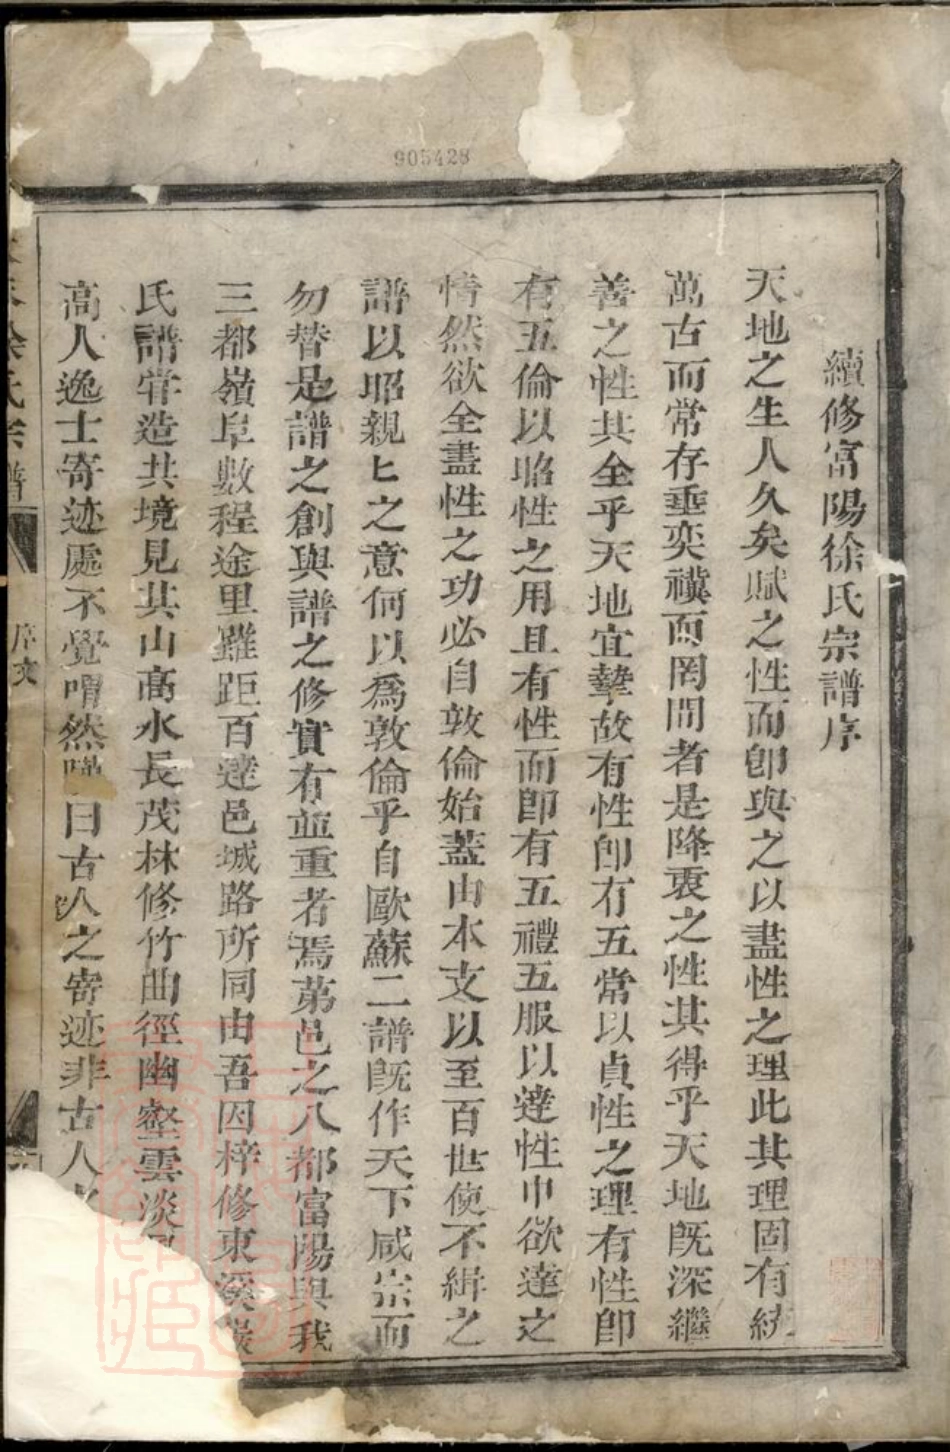 905428
續修富陽徐氏宗譜序
天地之生人久矣賦之性而卽與之以盡性之理此其理固有統
萬古而常存垂奕禩而罔間者是降衷之性其得乎天地旣深繼
善之性其全乎天地宜摯故有性卽有五常以貞性之理有性卽
有五倫以昭性之用且有性而卽有五禮五服以達性巾欲達之
情然欲全盡性之功必自敦倫始蓋由本支以至百世使不緝之
譜以昭親匕之意何以爲敦倫乎自歐蘇二譜旣作天下咸宗而
勿替是譜之創與譜之修實有並重者焉第邑之八都富陽與我
三都嶺阜數程途里雖距百達邑城路所同由吾因梓修東溪
氏譜甞造其境見其山高水長茂林修竹曲徑幽壑雲淡
高人逸士寄迹處不覺喟然嘆曰古人之寄迹非古人
徐氏宗譜
序文